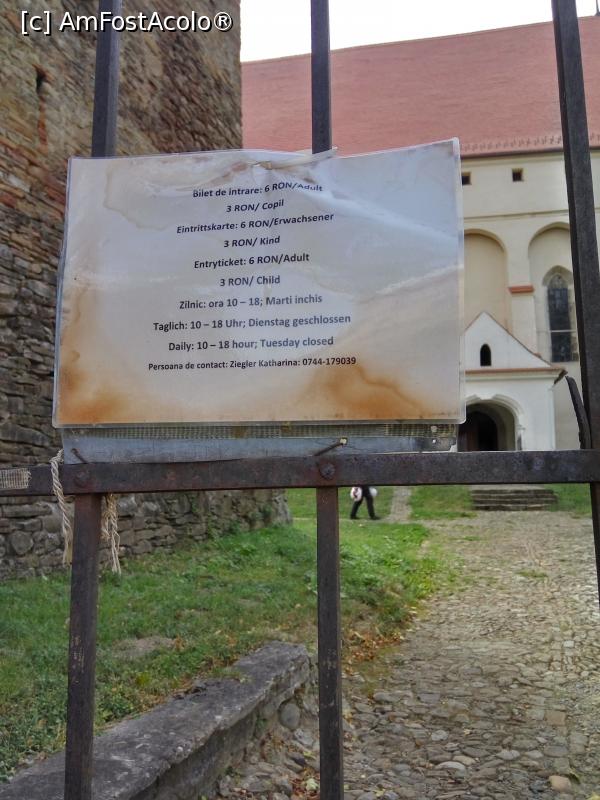 [c] AmFostAcolo®
Bilet de intrare: 6 RON/Adult
3 RON/ Copil
Eintrittskarte: 6 RON/Erwachsener
3 RON/ Kind
Entryticket: 6 RON/Adult
3 RON/ Child
Zilnic: ora 10 – 18; Marti inchis
Taglich: 10 – 18 Uhr; Dienstag geschlossen
Daily: 10 – 18 hour; Tuesday closed
Persoana de contact: Ziegler Katharina: 0744-179039